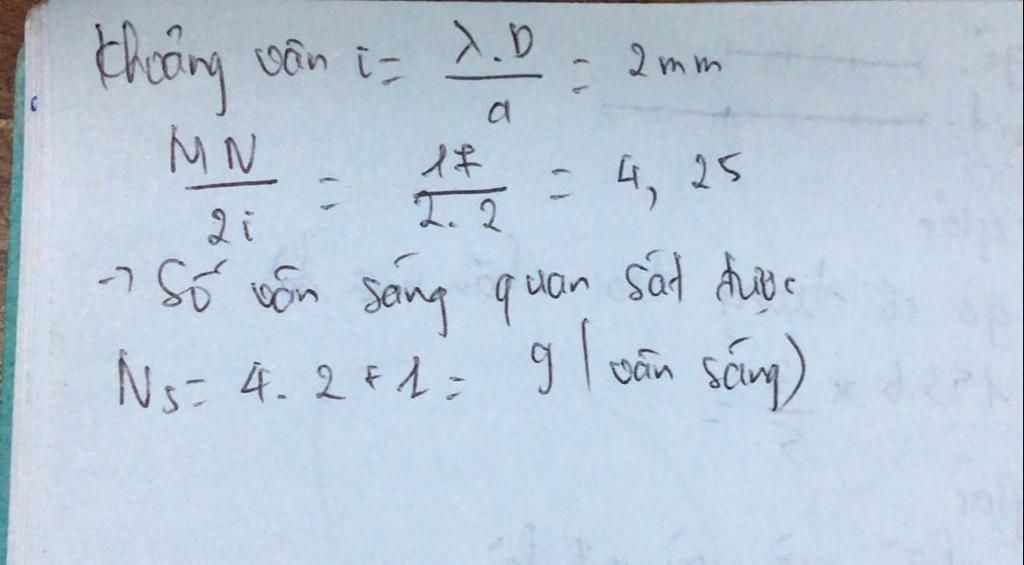 Khoảng vân i = λ.D / a = 2mm
MN / 2i = 17 / 2.2 = 4,25
→ Số vân sáng quan sát được
Ns = 4.2 + 1 = 9 (vân sáng)